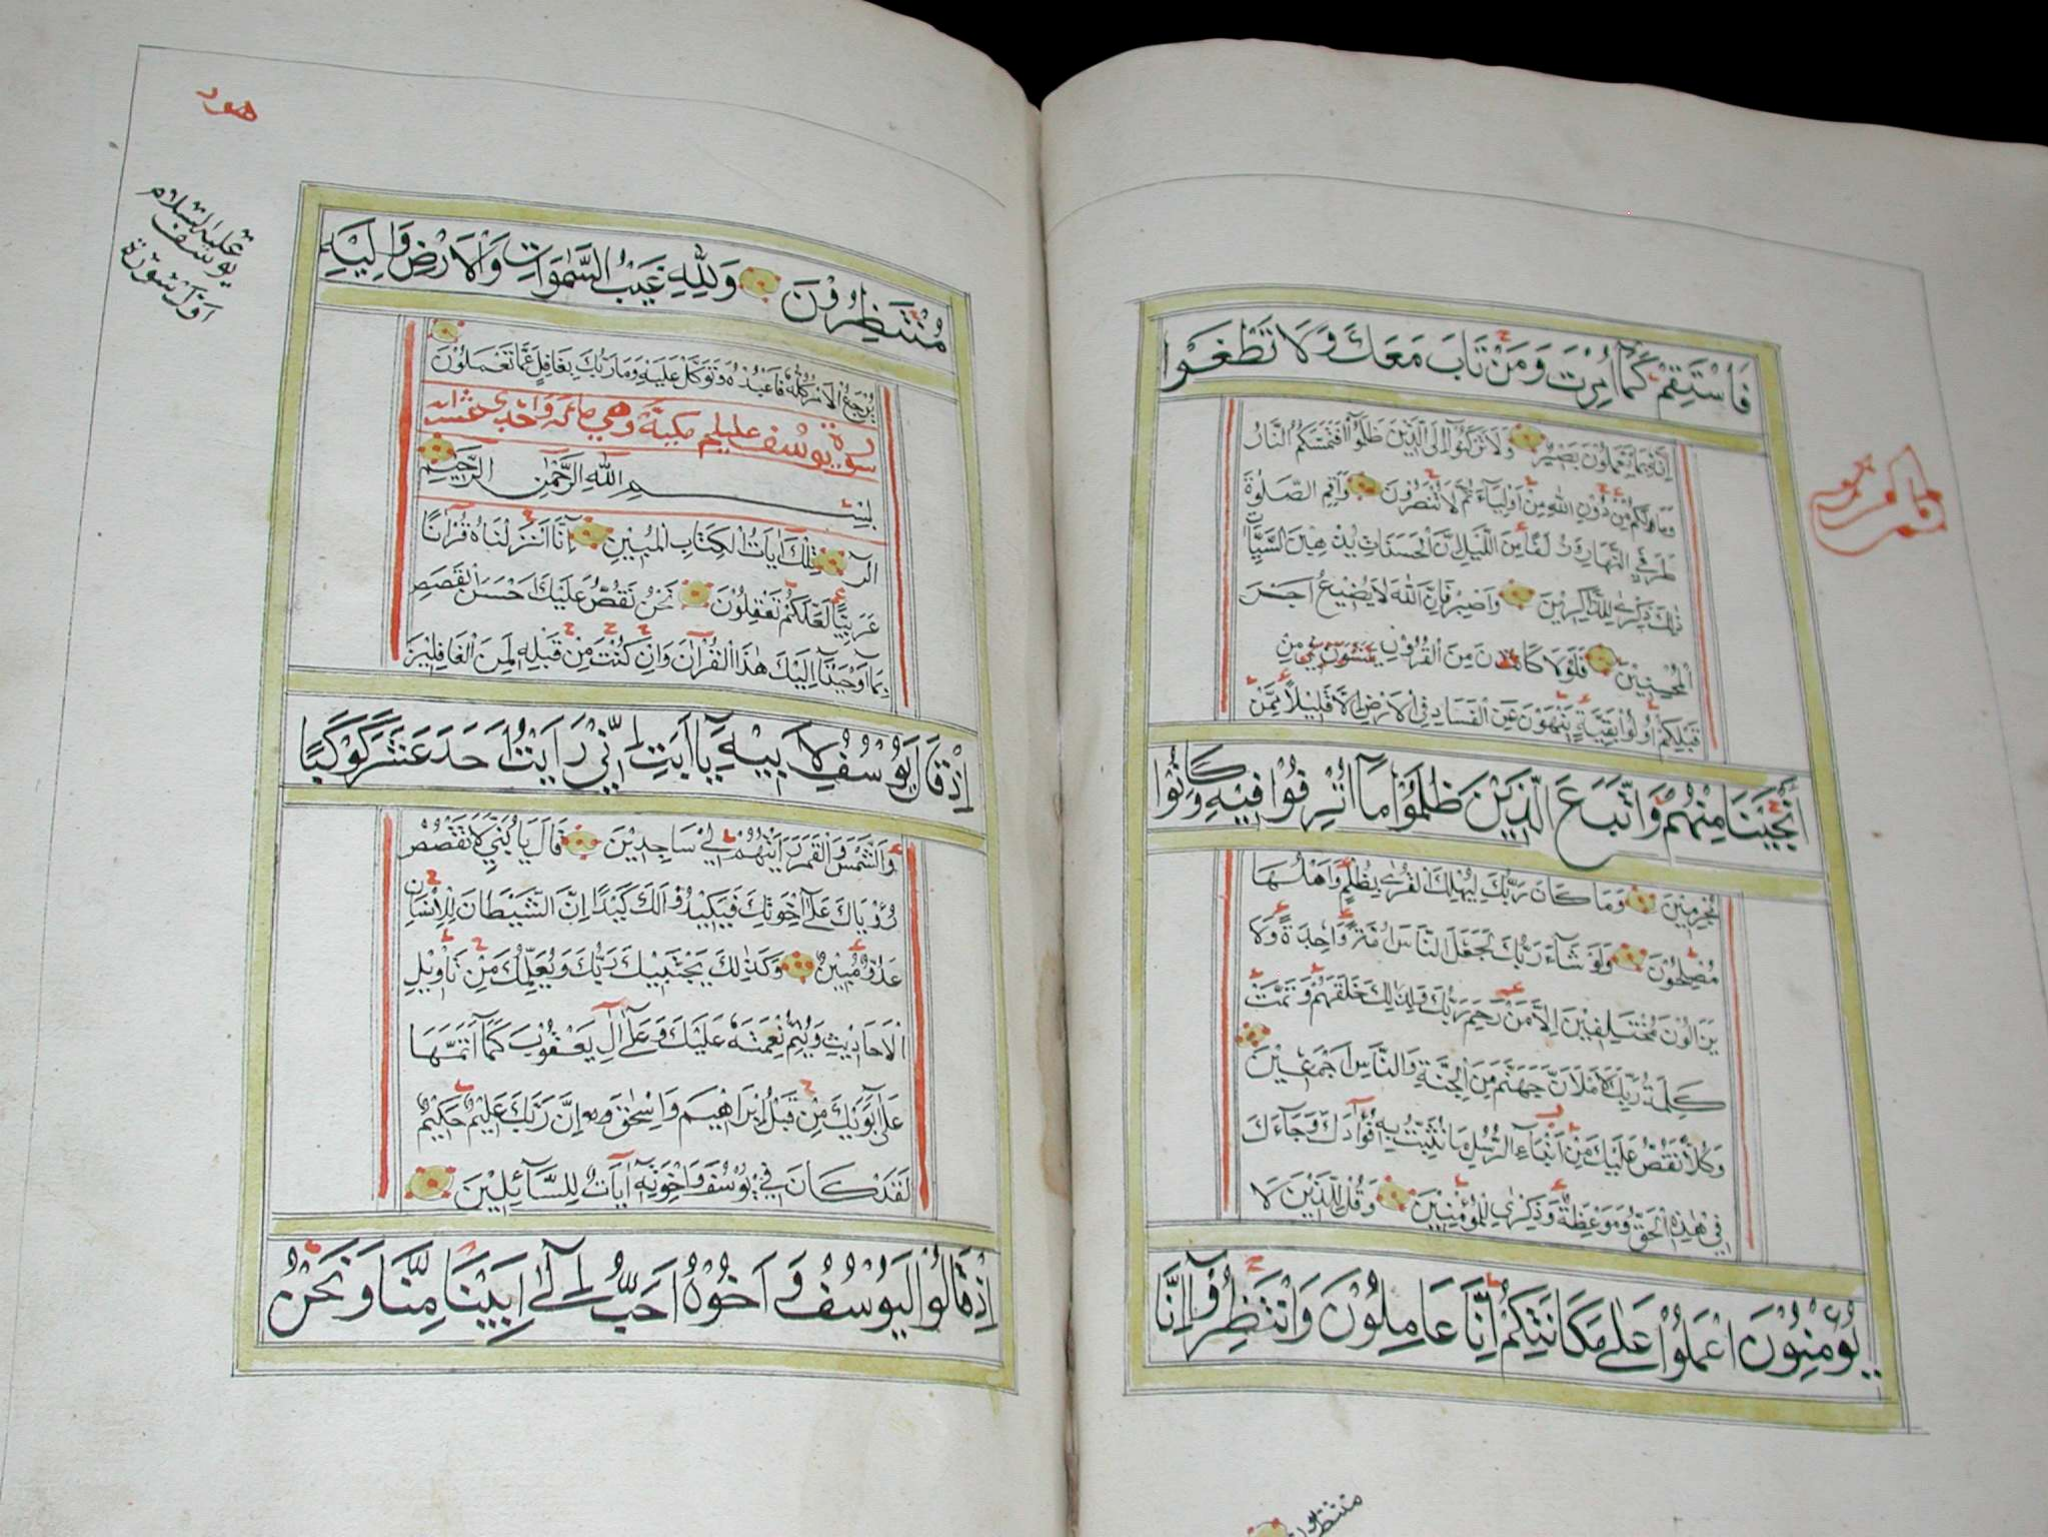 فَاسْتَقِمْ كَمَا أُمِرْتَ وَمَنْ تَابَ مَعَكَ وَلَا تَطْغَوْا
إِنَّهُ بِمَا تَعْمَلُونَ بَصِيرٌ وَلَا تَرْكَنُوا إِلَى الَّذِينَ ظَلَمُوا فَتَمَسَّكُمُ النَّارُ
وَمَا لَكُمْ مِنْ دُونِ اللَّهِ مِنْ أَوْلِيَاءَ ثُمَّ لَا تُنْصَرُونَ وَأَقِمِ الصَّلَوٰةَ
طَرَفَيِ النَّهَارِ وَزُلَفًا مِنَ اللَّيْلِ إِنَّ الْحَسَنَاتِ يُذْهِبْنَ السَّيِّئَاتِ
ذٰلِكَ ذِكْرٰى لِلذَّاكِرِينَ وَاصْبِرْ فَإِنَّ اللَّهَ لَا يُضِيعُ أَجْرَ
الْمُحْسِنِينَ فَلَوْلَا كَانَ مِنَ الْقُرُونِ مِنْ
قَبْلِكُمْ أُولُوا بَقِيَّةٍ يَنْهَوْنَ عَنِ الْفَسَادِ فِي الْأَرْضِ إِلَّا قَلِيلًا مِمَّنْ
أَنْجَيْنَا مِنْهُمْ وَاتَّبَعَ الَّذِينَ ظَلَمُوا مَا أُتْرِفُوا فِيهِ وَكَانُوا
مُجْرِمِينَ وَمَا كَانَ رَبُّكَ لِيُهْلِكَ الْقُرٰى بِظُلْمٍ وَأَهْلُهَا
مُصْلِحُونَ وَلَوْ شَاءَ رَبُّكَ لَجَعَلَ النَّاسَ أُمَّةً وَاحِدَةً وَلَا
يَزَالُونَ مُخْتَلِفِينَ إِلَّا مَنْ رَحِمَ رَبُّكَ وَلِذٰلِكَ خَلَقَهُمْ وَتَمَّتْ
كَلِمَةُ رَبِّكَ لَأَمْلَأَنَّ جَهَنَّمَ مِنَ الْجِنَّةِ وَالنَّاسِ أَجْمَعِينَ
وَكُلًّا نَقُصُّ عَلَيْكَ مِنْ أَنْبَاءِ الرُّسُلِ مَا نُثَبِّتُ بِهِ فُؤَادَكَ وَجَاءَكَ
فِي هٰذِهِ الْحَقُّ وَمَوْعِظَةٌ وَذِكْرٰى لِلْمُؤْمِنِينَ وَقُلْ لِلَّذِينَ لَا
يُؤْمِنُونَ اعْمَلُوا عَلٰى مَكَانَتِكُمْ إِنَّا عَامِلُونَ وَانْتَظِرُوا إِنَّا
منتظرون
هود
عليه السلام
يوسف
اول سورة
مُنْتَظِرُونَ وَلِلَّهِ غَيْبُ السَّمٰوَاتِ وَالْأَرْضِ وَإِلَيْهِ
يُرْجَعُ الْأَمْرُ كُلُّهُ فَاعْبُدْهُ وَتَوَكَّلْ عَلَيْهِ وَمَا رَبُّكَ بِغَافِلٍ عَمَّا تَعْمَلُونَ
سورة يوسف مكية وهي مائة واحدى عشر
بِسْمِ اللَّهِ الرَّحْمٰنِ الرَّحِيمِ
الٓرٰ تِلْكَ اٰيَاتُ الْكِتَابِ الْمُبِينِ إِنَّا أَنْزَلْنَاهُ قُرْآنًا
عَرَبِيًّا لَعَلَّكُمْ تَعْقِلُونَ نَحْنُ نَقُصُّ عَلَيْكَ أَحْسَنَ الْقَصَصِ
بِمَا أَوْحَيْنَا إِلَيْكَ هٰذَا الْقُرْاٰنَ وَإِنْ كُنْتَ مِنْ قَبْلِهِ لَمِنَ الْغَافِلِينَ
إِذْ قَالَ يُوسُفُ لِأَبِيهِ يَا أَبَتِ إِنِّي رَأَيْتُ أَحَدَ عَشَرَ كَوْكَبًا
وَالشَّمْسَ وَالْقَمَرَ رَأَيْتُهُمْ لِي سَاجِدِينَ قَالَ يَا بُنَيَّ لَا تَقْصُصْ
رُؤْيَاكَ عَلٰى إِخْوَتِكَ فَيَكِيدُوا لَكَ كَيْدًا إِنَّ الشَّيْطَانَ لِلْإِنْسَانِ
عَدُوٌّ مُبِينٌ وَكَذٰلِكَ يَجْتَبِيكَ رَبُّكَ وَيُعَلِّمُكَ مِنْ تَأْوِيلِ
الْأَحَادِيثِ وَيُتِمُّ نِعْمَتَهُ عَلَيْكَ وَعَلٰى اٰلِ يَعْقُوبَ كَمَا أَتَمَّهَا
عَلٰى أَبَوَيْكَ مِنْ قَبْلُ إِبْرَاهِيمَ وَإِسْحٰقَ إِنَّ رَبَّكَ عَلِيمٌ حَكِيمٌ
لَقَدْ كَانَ فِي يُوسُفَ وَإِخْوَتِهِ اٰيَاتٌ لِلسَّائِلِينَ
إِذْ قَالُوا لَيُوسُفُ وَأَخُوهُ أَحَبُّ إِلٰى أَبِينَا مِنَّا وَنَحْنُ